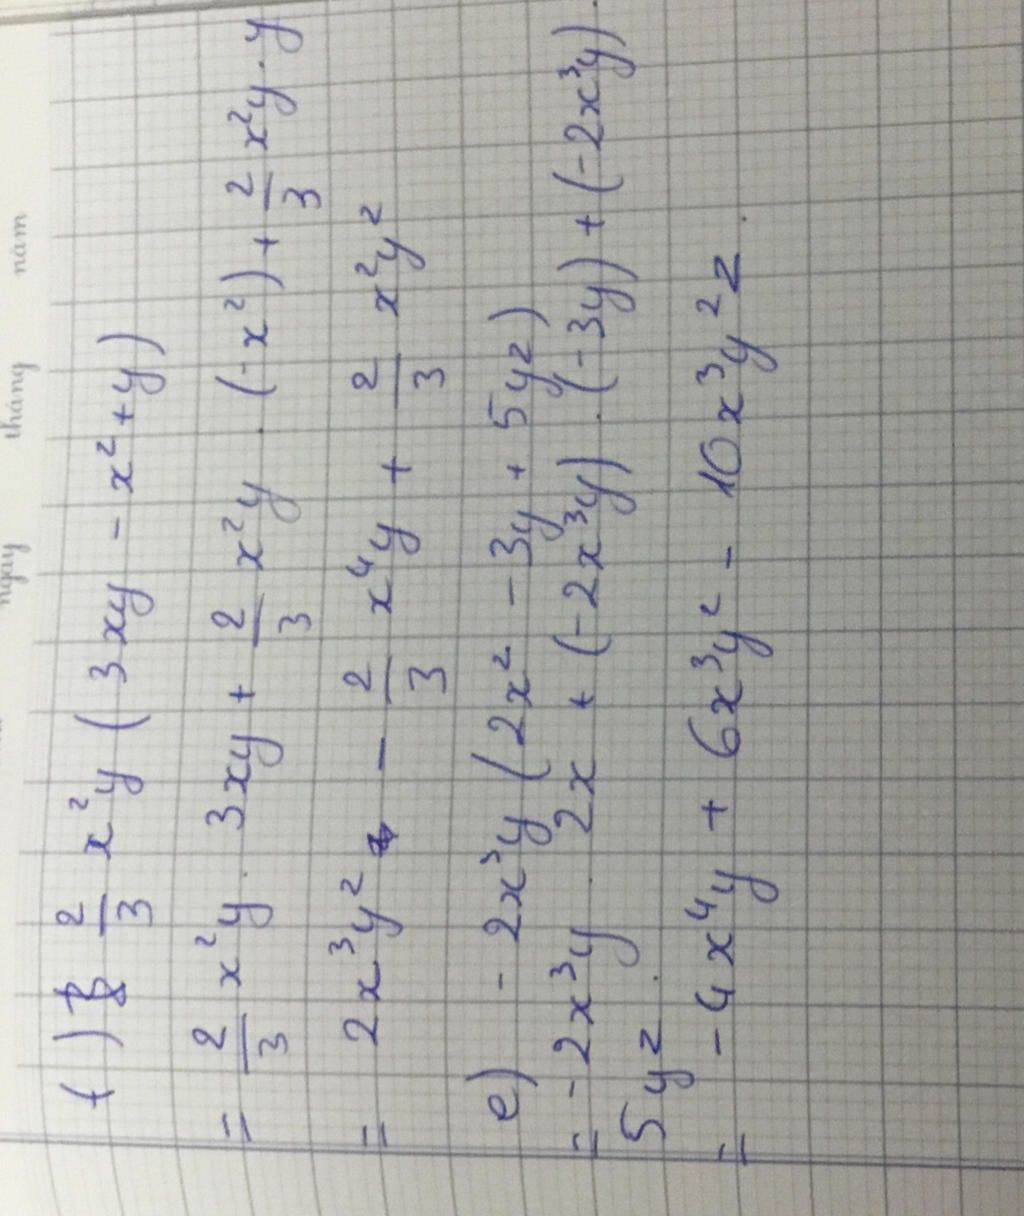 ngày tháng năm
f) \frac{2}{3} x²y (3xy - x² + y)
= \frac{2}{3} x²y . 3xy + \frac{2}{3} x²y . (-x²) + \frac{2}{3} x²y . y
= 2x³y² - \frac{2}{3} x⁴y + \frac{2}{3} x²y²
e) - 2x³y (2x² - 3y + 5yz)
= - 2x³y . 2x + (-2x³y) . (-3y) + (-2x³y) .
5yz .
= - 4x⁴y + 6x³y² - 10x³y²z .